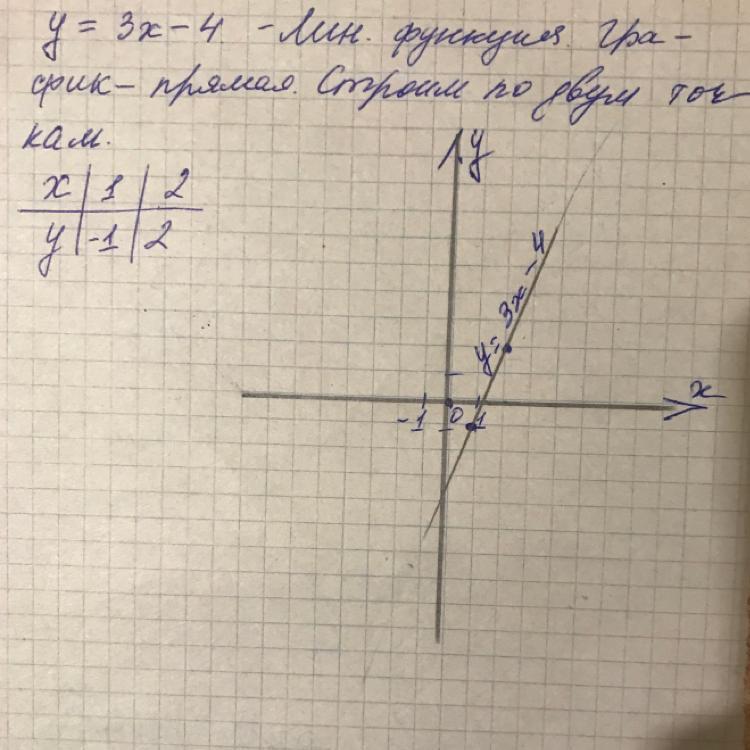 y = 3x - 4 - Лин. функция. Гра-
фик - прямая. Строим по двум точ-
кам.
x | 1 | 2
y | -1 | 2
y
y = 3x - 4
x
-1 0 1